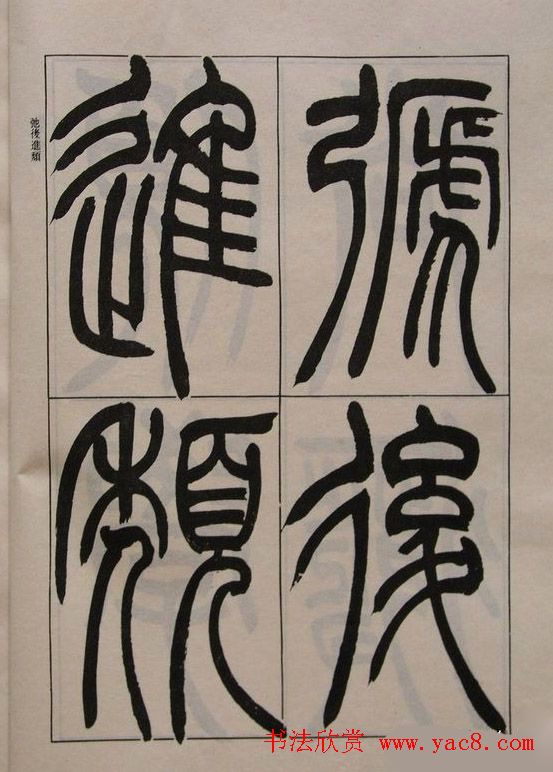 㢮後
進頹
弛後進頹
书法欣赏 www.yac8.com